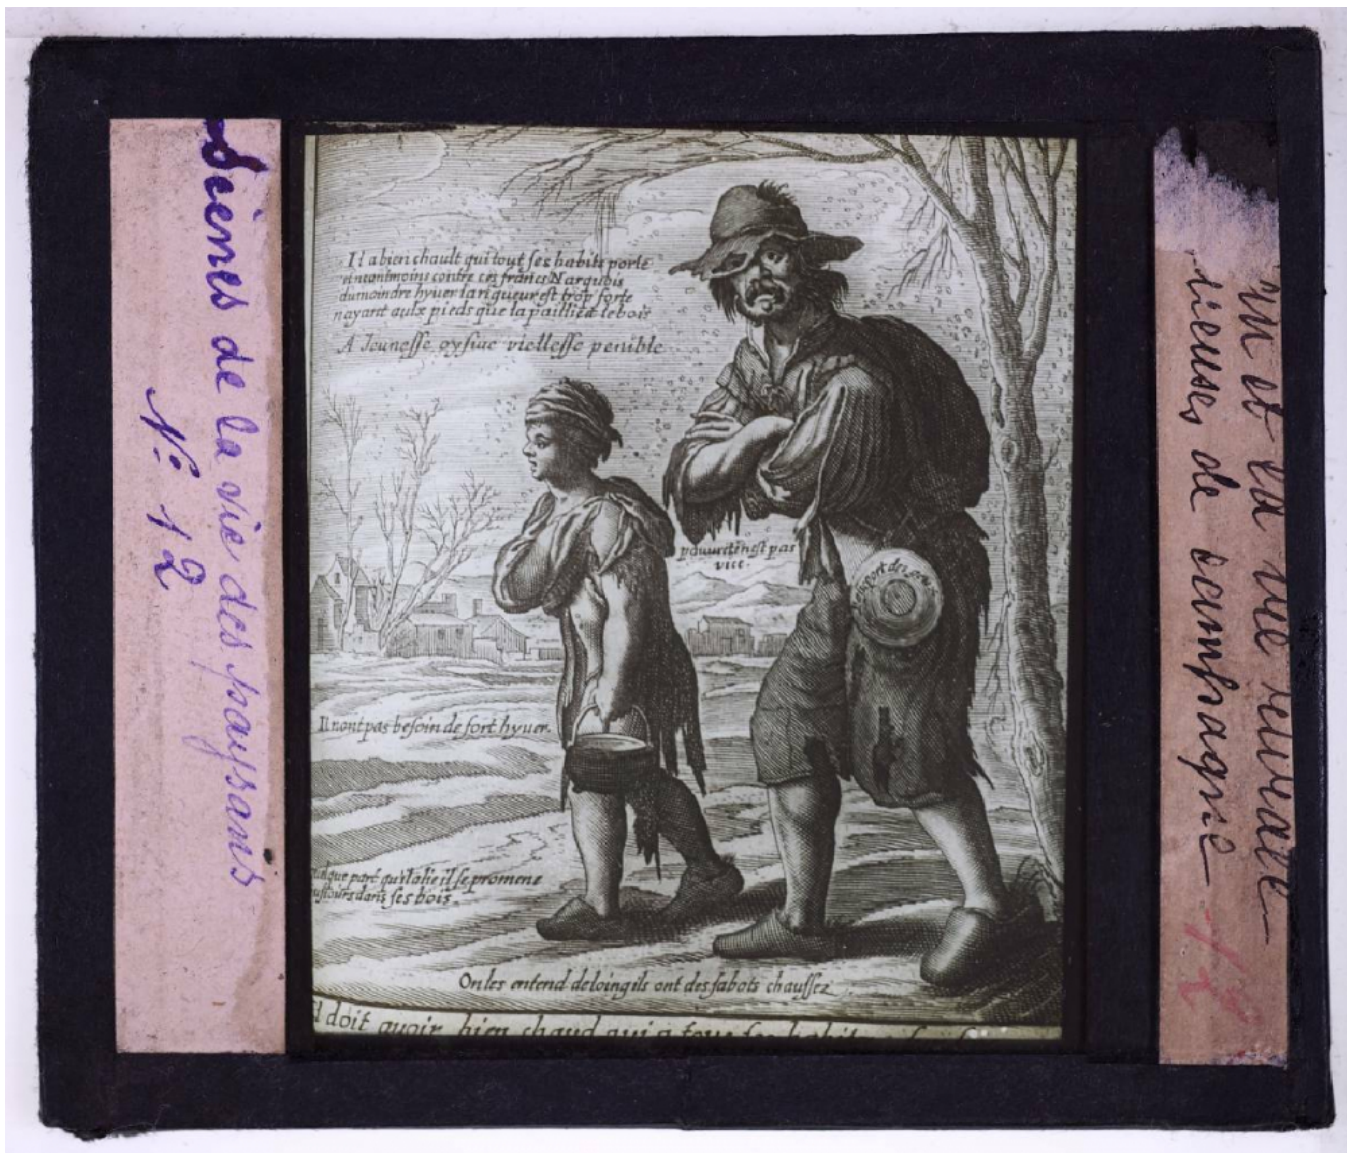 Scènes de la vie des paysans
N° 12
Il a bien chault qui tout ses habits porte
et neantmoins contre ces francs Narquois
du moindre hyver la rigueur est trop forte
nayant aulx pieds que la paille et le bois
A Jeunesse oysiue viellesse penible
pauureté nest pas
vice.
port des
Il nont pas besoin de fort hyuer.
que part qu'il alie il se promene
dans ses bois.
On les entend de loing ils ont des sabots chaussez
Il doit avoir bien chaud qui a tous
et la vie rurale
de campagne
12